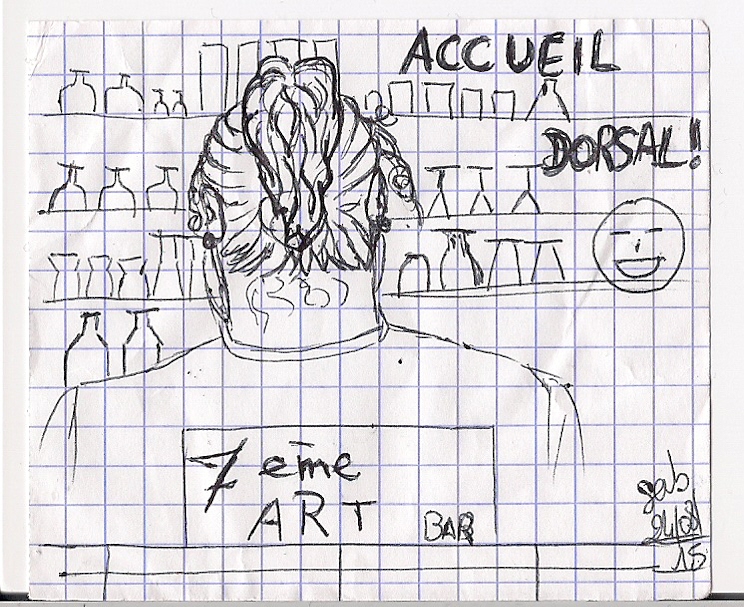 ACCUEIL
DORSAL!
7eme
ART
BAR
gab
24/08
15